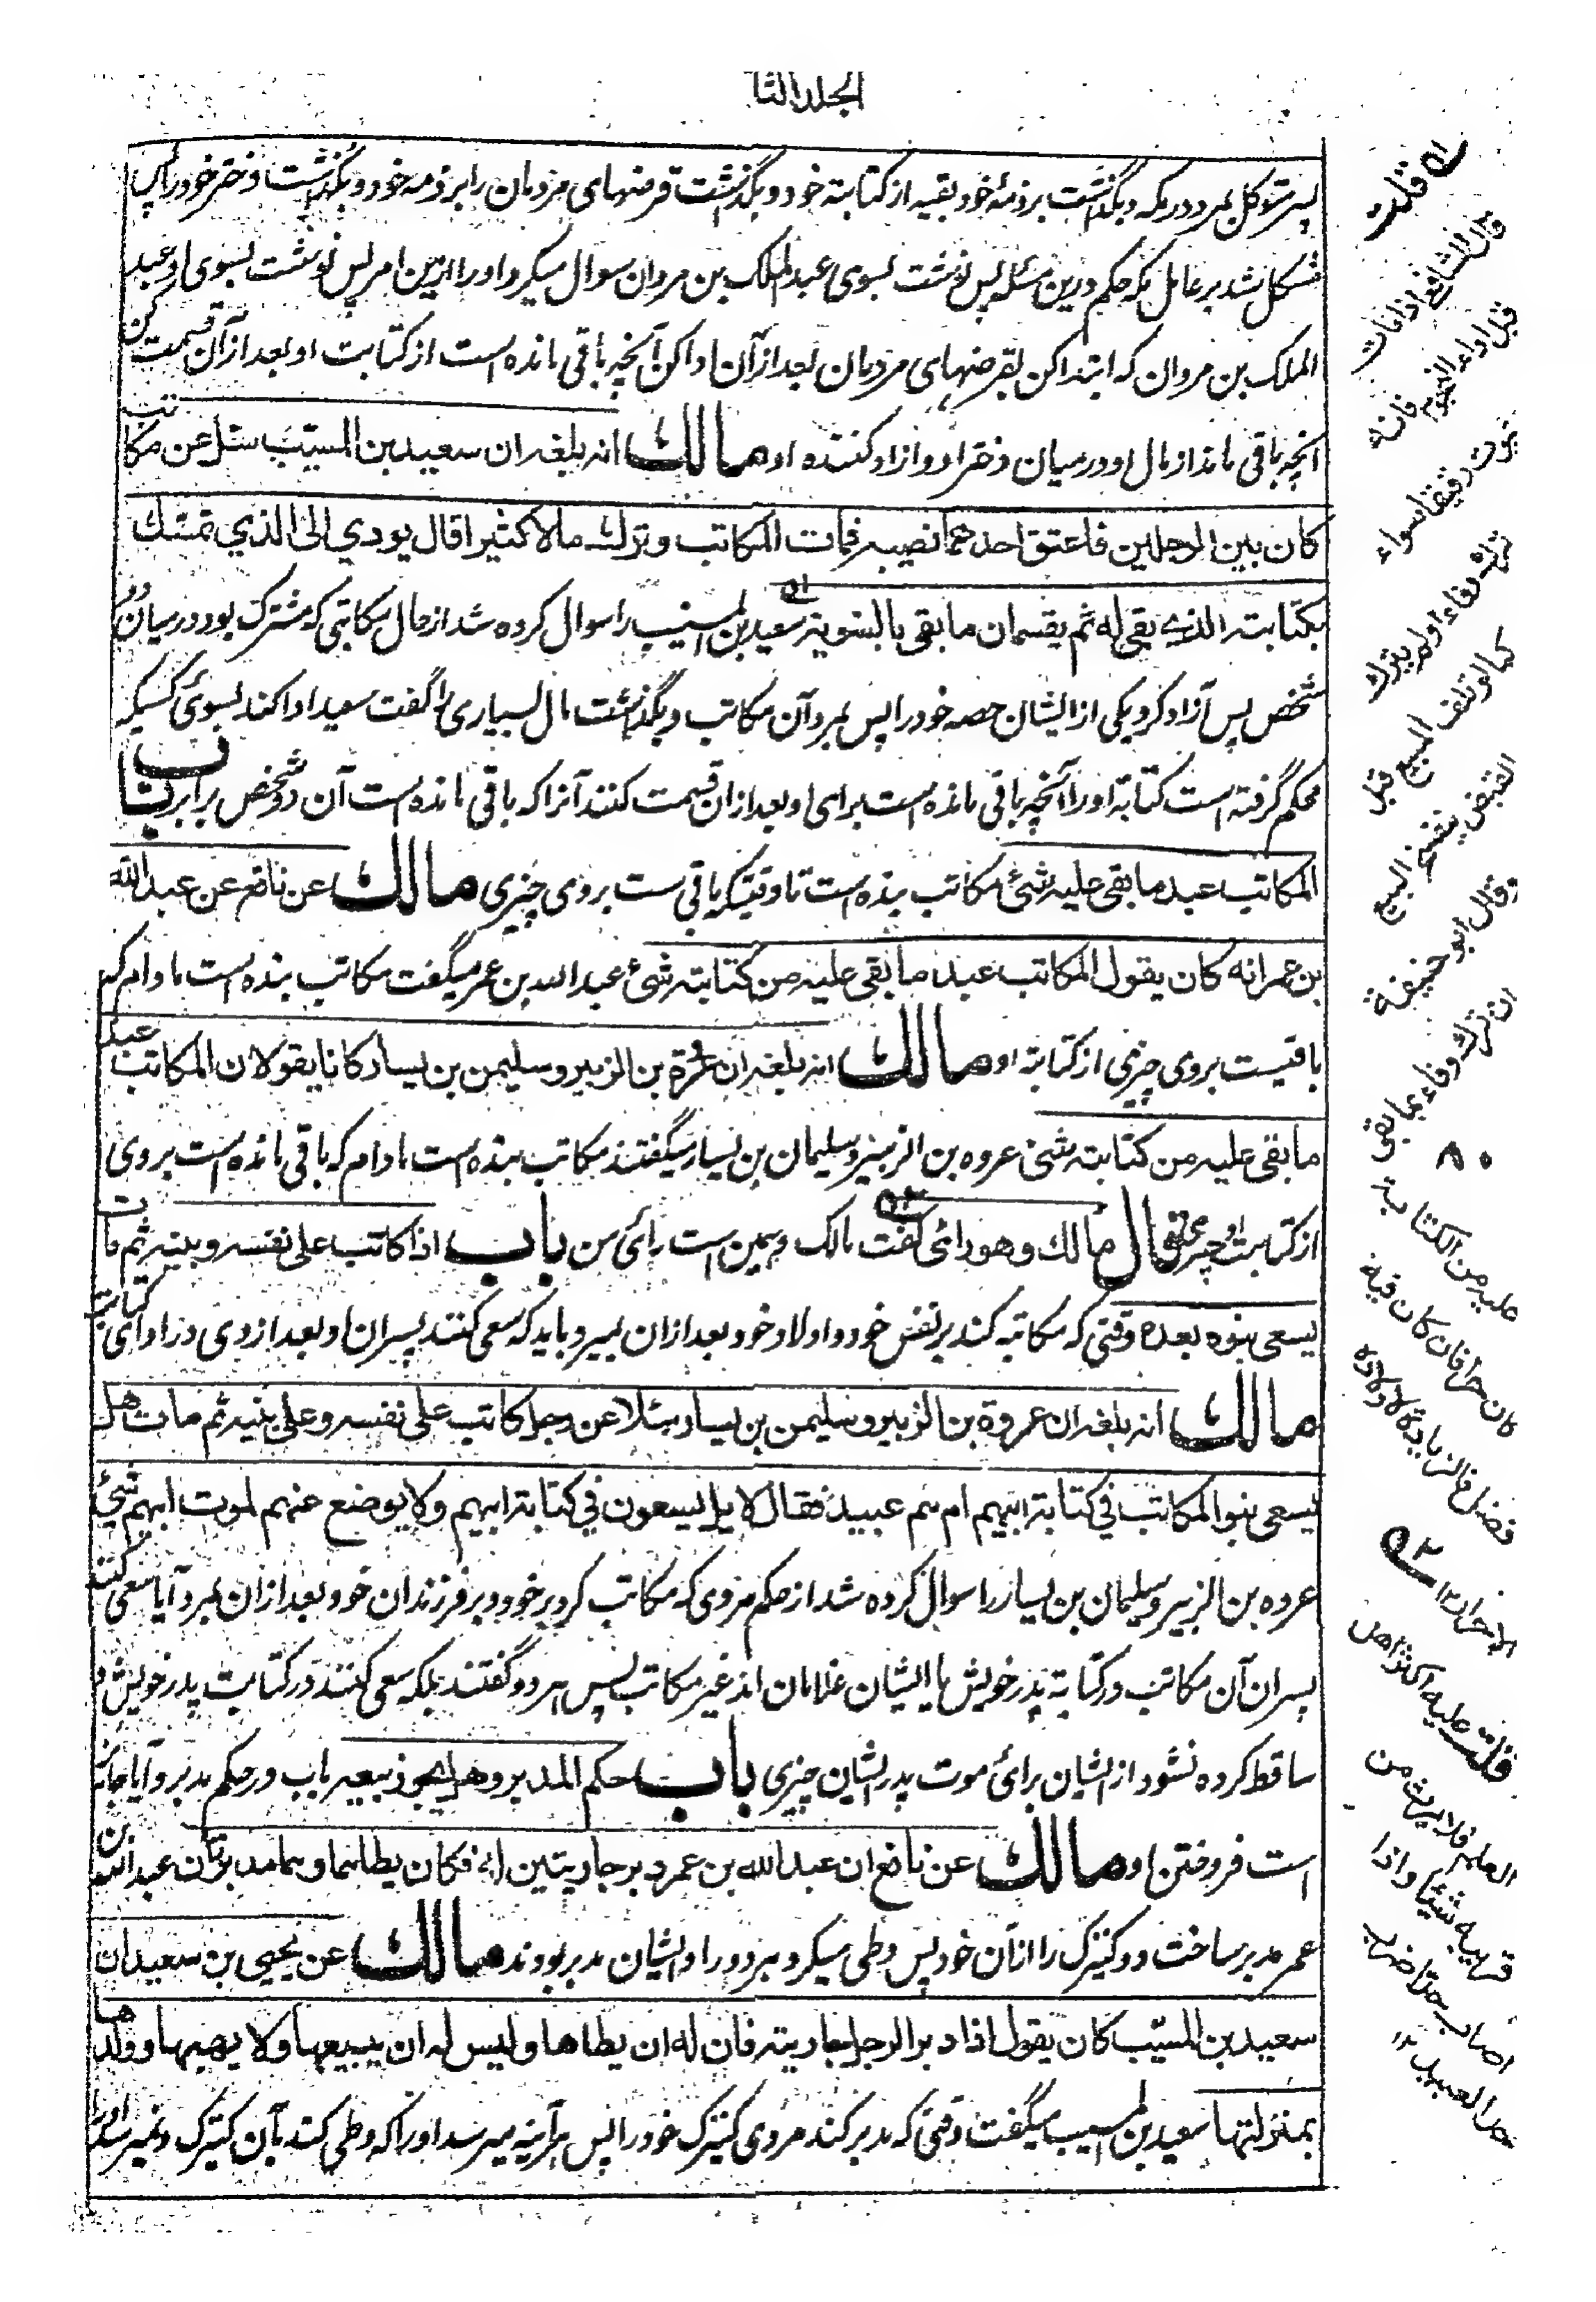 الجلد الثا
پسر متوکل بمرد در مکه و بگذاشت بر ذمهٔ خود بقیه از کتابتهٔ خود و بگذاشت قرضهای مردمان را بر ذمه خود و بگذاشت دختر خود را پس
مشکل شد بر عامل مکه حکم درین مسئله پس نوشت بسوی عبد الملک بن مروان سوال میکرد او را ازین امر پس نوشت بسوی او عبد
الملک بن مروان که ابتدا کن بقرضهای مردمان بعد از آن ادا کن آنچه باقی مانده است از کتابت او بعد از آن قسمت کن
آنچه باقی ماند از مال او در میان دختر او و آزاد کننده او مالك انه بلغه ان سعيد بن المسيّب سئل عن مكاتب
كان بين الرجلين فاعتق احدهما نصيبه فمات المكاتب وترك مالا كثيرا قال يودي الى الذي تمسّك
بكتابته الذي بقي له ثم يقسمان ما بقي بالسّوية سعید بن المسیّب را سوال کرده شد از حال مکاتبی که مشترک بود در میان دو
شخص پس آزاد کرد یکی از ایشان حصه خود را پس بمرد آن مکاتب و بگذاشت مال بسیاری را گفت سعید ادا کند بسوی کسیکه
محکم گرفته است کتابة او را آنچه باقی مانده است برای او بعد ازان قسمت کنند آنرا که باقی مانده است آن دو شخص برابر باب
المكاتب عبد ما بقي عليه شئ مکاتب بنده است تا وقتیکه باقی ست بروی چیزی مالك عن نافع عن عبد الله
بن عمر انه كان يقول المكاتب عبد ما بقي عليه من كتابته شئ عبد الله بن عمر میگفت مکاتب بنده است مادام که
باقیست بروی چیزی از کتابة او مالك انه بلغه ان عروة بن الزبير وسليمن بن يسار كانا يقولان المكاتب عبد
ما بقي عليه من كتابته شئ عروه بن الزبیر و سلیمان بن یسار میگفتند مکاتب بنده است مادام که باقی مانده است بروی
از کتابت او چیزی قال مالك وهو رائي گفت مالک و همین است رائی من باب اذا كاتب على نفسه وبنيه ثم مات
يسعى بنوه بعده وقتی که مکاتبه کند بر نفس خود و اولاد خود بعد ازان بمیرد باید که سعی کنند پسران او بعد از وی در ادای کتابة
مالك انه بلغه ان عروة بن الزبير وسليمن بن يسار سئلا عن رجل كاتب على نفسه وعلى بنيه ثم مات هل
يسعى بنو المكاتب في كتابة ابيهم ام هم عبيد فقال لا بل يسعون في كتابة ابيهم ولا يوضع عنهم لموت ابيهم شئ
عروه بن الزبیر و سلیمان بن یسار را سوال کرده شد از حکم مردی که مکاتب کرد بر خود و بر فرزندان خود بعد ازان بمرد آیا سعی کنند
پسران آن مکاتب در کتابة پدر خویش یا ایشان غلامان اند غیر مکاتب پس هر دو گفتند بلکه سعی کنند در کتابت پدر خویش و
ساقط کرده نشود از ایشان برائی موت پدر ایشان چیزی باب حكم المدبر وهل يجوز بيعه باب در حکم مدبر و آیا جائز
است فروختن او مالك عن نافع ان عبد الله بن عمر دبر جاريتين له فكان يطاهما وهما مدبرتان عبد الله بن
عمر مدبر ساخت دو کنیزک را از آن خود پس وطی میکرد هر دو را و ایشان مدبر بودند مالك عن يحيى بن سعيد ان
سعيد بن المسيّب كان يقول اذا دبر الرجل جاريته فان له ان يطاها وليس له ان يبيعها ولا يهبها وولدها
بمنزلتها سعید بن المسیب میگفت وقتی که مدبر کند مردی کنیزک خود را پس هر آینه میرسد او را که وطی کند بآن کنیزک و نمیرسد او را
۵۱ قلت
قال الشافعي اذا مات
قبل اداء النجوم فانه
يموت رقيقا سواء
ترك وفاء او لم يترك
كما لو تلف المبيع قبل
القبض ينفسخ البيع
وقال ابو حنيفة
ان ترك وفاء بما بقي
٨٠
عليه من الكتابة
كان حرا فان كان فيه
فضل فالزيادة لاولاده
الاحرار ١٢ ۵۲
قلت عليه اكثر اهل
العلم فلا يرث من
قريبه شيئا واذا
اصاب حدا ضرب
حد العبيد ١٢